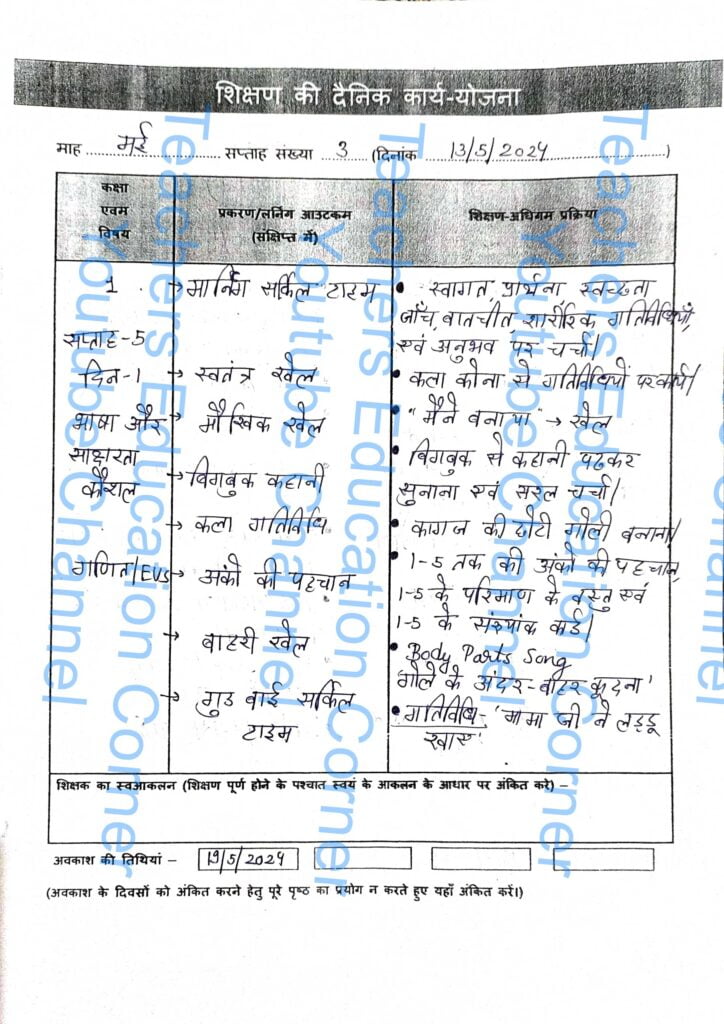 शिक्षण की दैनिक कार्य-योजना
माह मई सप्ताह संख्या 3 (दिनांक 13/5/2024)
कक्षा एवम विषय
प्रकरण/लर्निंग आउटकम (संक्षिप्त में)
शिक्षण-अधिगम प्रक्रिया
1
सप्ताह-5
दिन-1
भाषा और
साक्षरता
कौशल
गणित/EVS
→ मार्निंग सर्किल टाइम
→ स्वतंत्र खेल
→ मौखिक खेल
→ बिगबुक कहानी
→ कला गतिविधि
→ अंको की पहचान
→ बाहरी खेल
→ गुड बाई सर्किल
टाइम
• स्वागत प्रार्थना स्वच्छता
जाँच, वातचीत, शारीरिक गतिविधियाँ,
एवं अनुभव पर चर्चा।
• कला कोना से गतिविधियों पर कार्य।
• "मैने बनाया" → खेल
• बिगबुक से कहानी पढकर
सुनाना एवं सरल चर्चा।
• कागज की छोटी गोली बनाना।
• 1-5 तक की अंको की पहचान,
1-5 के परिमाण के वस्तु एवं
1-5 के संख्यांक कार्ड।
• Body Parts Song
गोले के अंदर-बाहर कूदना'
• गतिविधि- 'मामा जी ने लड्डू
खाए'
शिक्षक का स्वआकलन (शिक्षण पूर्ण होने के पश्चात स्वयं के आकलन के आधार पर अंकित करे) –
अवकाश की तिथियां – 19/5/2024
(अवकाश के दिवसों को अंकित करने हेतु पूरे पृष्ठ का प्रयोग न करते हुए यहाँ अंकित करें।)
Teachers Education Corner
Youtube Channel
Teachers Education Corner
Youtube Channel
Teachers Education Corner
Youtube Channel